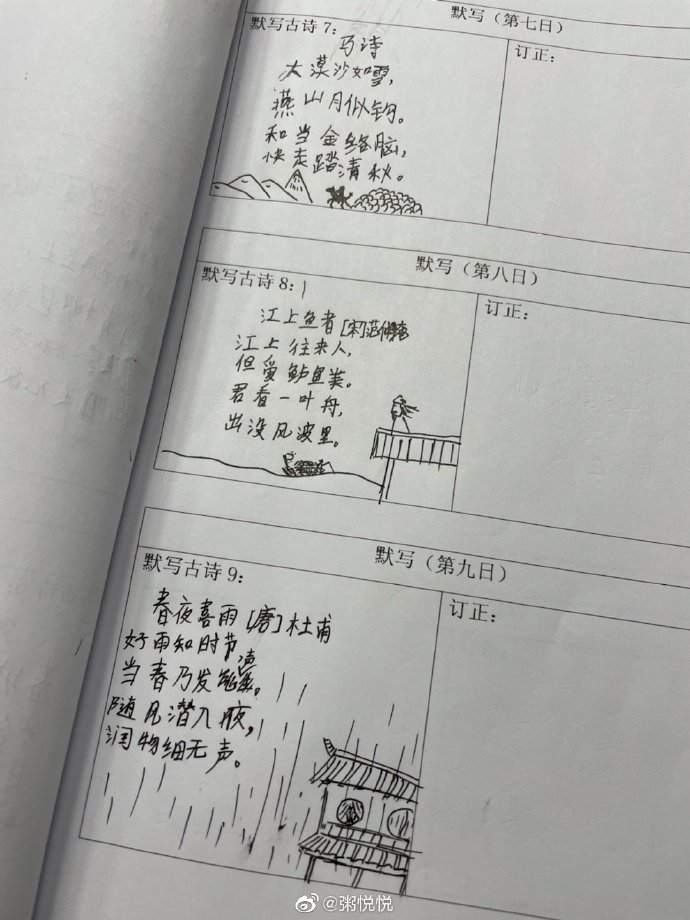 默写（第七日）
默写古诗7：
订正：
马诗
大漠沙如雪，
燕山月似钩。
和当金络脑，
快走踏清秋。
默写（第八日）
默写古诗8：
订正：
江上鱼者[宋]范仲淹
江上往来人，
但爱鲈鱼美。
君看一叶舟，
出没风波里。
默写（第九日）
默写古诗9：
订正：
春夜喜雨[唐]杜甫
好雨知时节
当春乃发
随风潜入腋，
润物细无声。
@粥悦悦